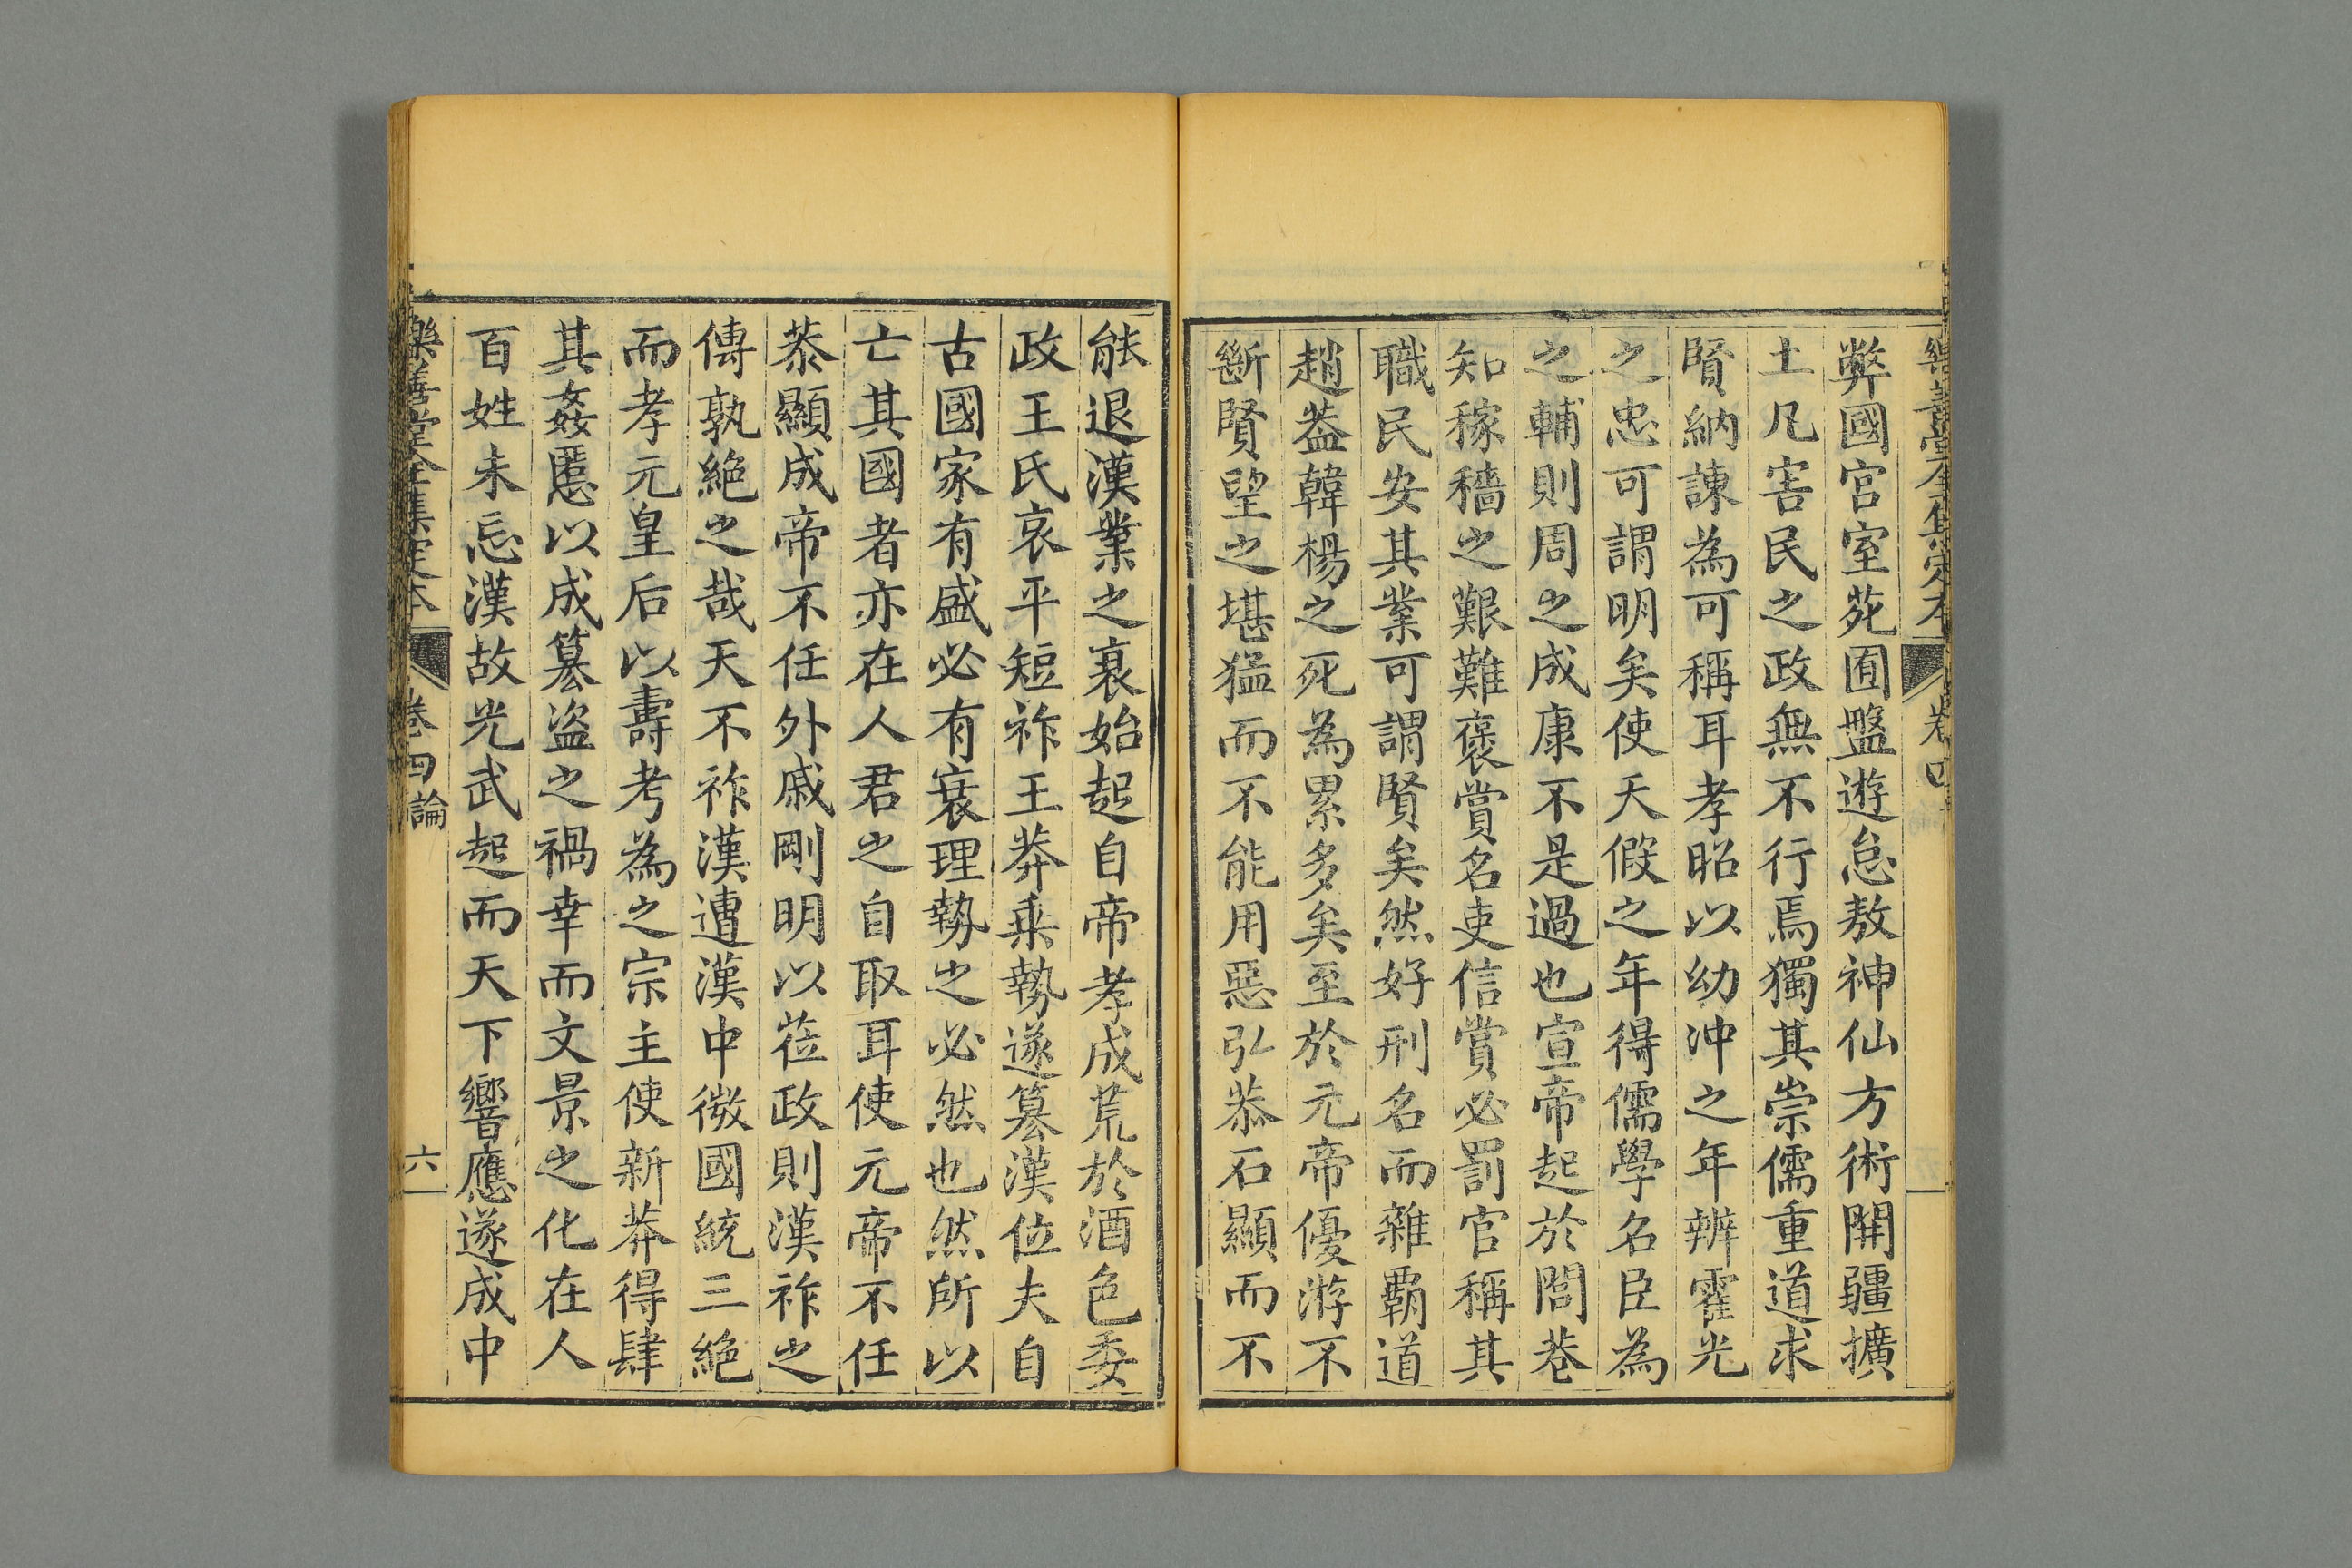 樂善堂全集定本 卷四
弊國宫室苑囿盤遊怠敖神仙方術開疆擴
土凡害民之政無不行焉獨其崇儒重道求
賢納諫為可稱耳孝昭以幼沖之年辨霍光
之忠可謂明矣使天假之年得儒學名臣為
之輔則周之成康不是過也宣帝起於閭巷
知稼穡之艱難褒賞名吏信賞必罰官稱其
職民安其業可謂賢矣然好刑名而雜霸道
趙葢韓楊之死為累多矣至於元帝優游不
斷賢望之堪猛而不能用惡弘恭石顯而不
能退漢業之衰始起自帝孝成荒於酒色委
政王氏哀平短祚王莽乗勢遂篡漢位夫自
古國家有盛必有衰理勢之必然也然所以
亡其國者亦在人君之自取耳使元帝不任
恭顯成帝不任外戚剛明以莅政則漢祚之
傳孰絶之哉天不祚漢遭漢中微國統三絶
而孝元皇后以壽考為之宗主使新莽得肆
其姦慝以成篡盗之禍幸而文景之化在人
百姓未忘漢故光武起而天下響應遂成中
樂善堂全集定本 卷四論 六